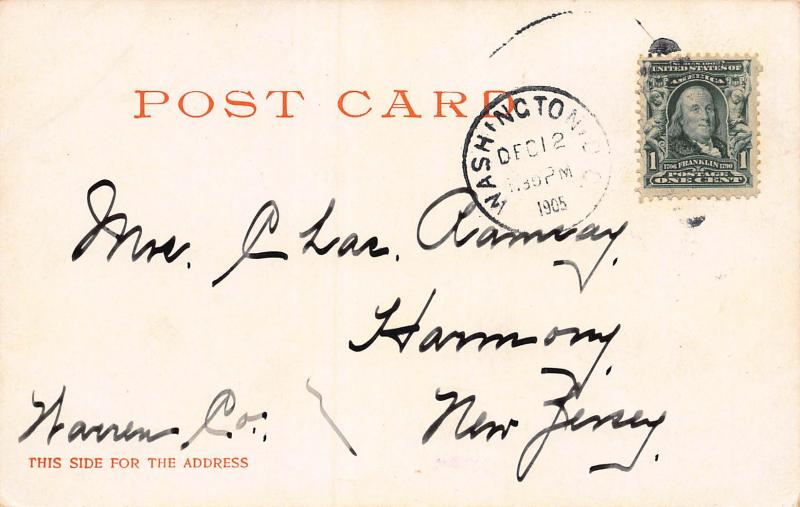 POST CARD
WASHINGTON, D.C.
DEC 12
1905
UNITED STATES OF
AMERICA
1 1706 FRANKLIN 1790 1
POSTAGE
ONE CENT
Mrs. Chas. Ramsay,
Harmony
Warren Co. New Jersey.
THIS SIDE FOR THE ADDRESS